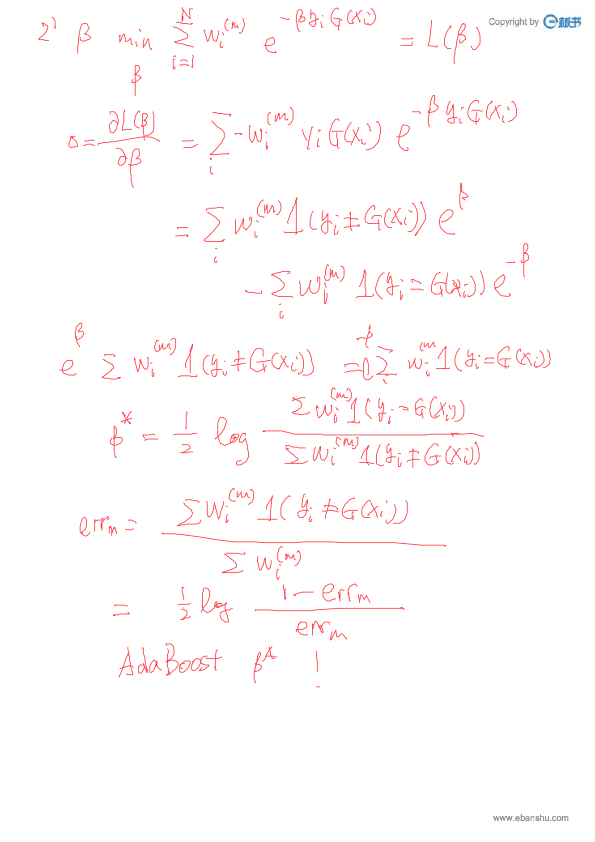 Copyright by 板书
2) β min_β Σ_{i=1}^{N} w_i^{(m)} e^{-β y_i G(x_i)} = L(β)
0 = ∂L(β)/∂β = Σ_i -w_i^{(m)} y_i G(x_i) e^{-β y_i G(x_i)}
= Σ_i w_i^{(m)} 1(y_i ≠ G(x_i)) e^β
- Σ_i w_i^{(m)} 1(y_i = G(x_i)) e^{-β}
e^β Σ w_i^{(m)} 1(y_i ≠ G(x_i)) = e^{-β} Σ_i w_i^{(m)} 1(y_i = G(x_i))
β* = 1/2 log Σ w_i^{(m)} 1(y_i = G(x_i)) / Σ w_i^{(m)} 1(y_i ≠ G(x_i))
err_m = Σ w_i^{(m)} 1(y_i ≠ G(x_i)) / Σ w_i^{(m)}
= 1/2 log 1 - err_m / err_m
AdaBoost β* !
www.ebanshu.com